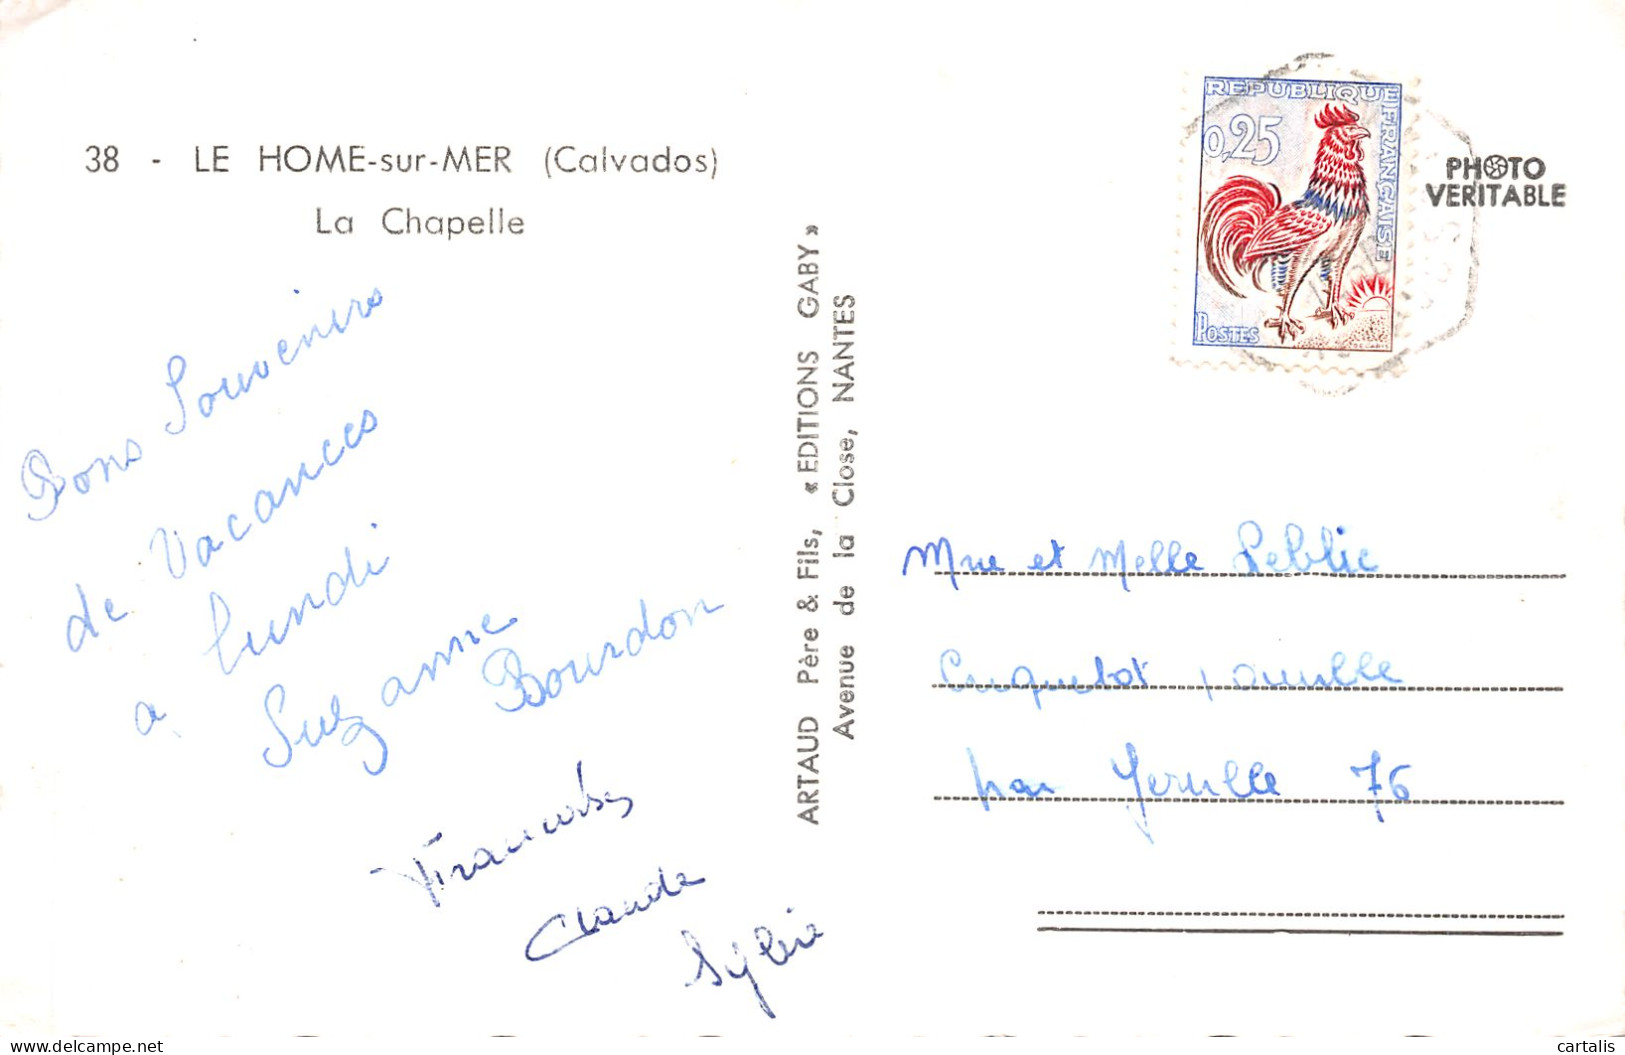 38 - LE HOME-sur-MER (Calvados)
La Chapelle
Bons Souvenirs
de Vacances
a lundi
Suzanne
Bourdon
Claude
Sylvie
ARTAUD Père & Fils, « EDITIONS GABY »
Avenue de la Close, NANTES
REPUBLIQUE
FRANÇAISE
0,25
POSTES
PHOTO
VERITABLE
Mme et Melle Leblic
par Yerville 76
cartalis
delcampe.net